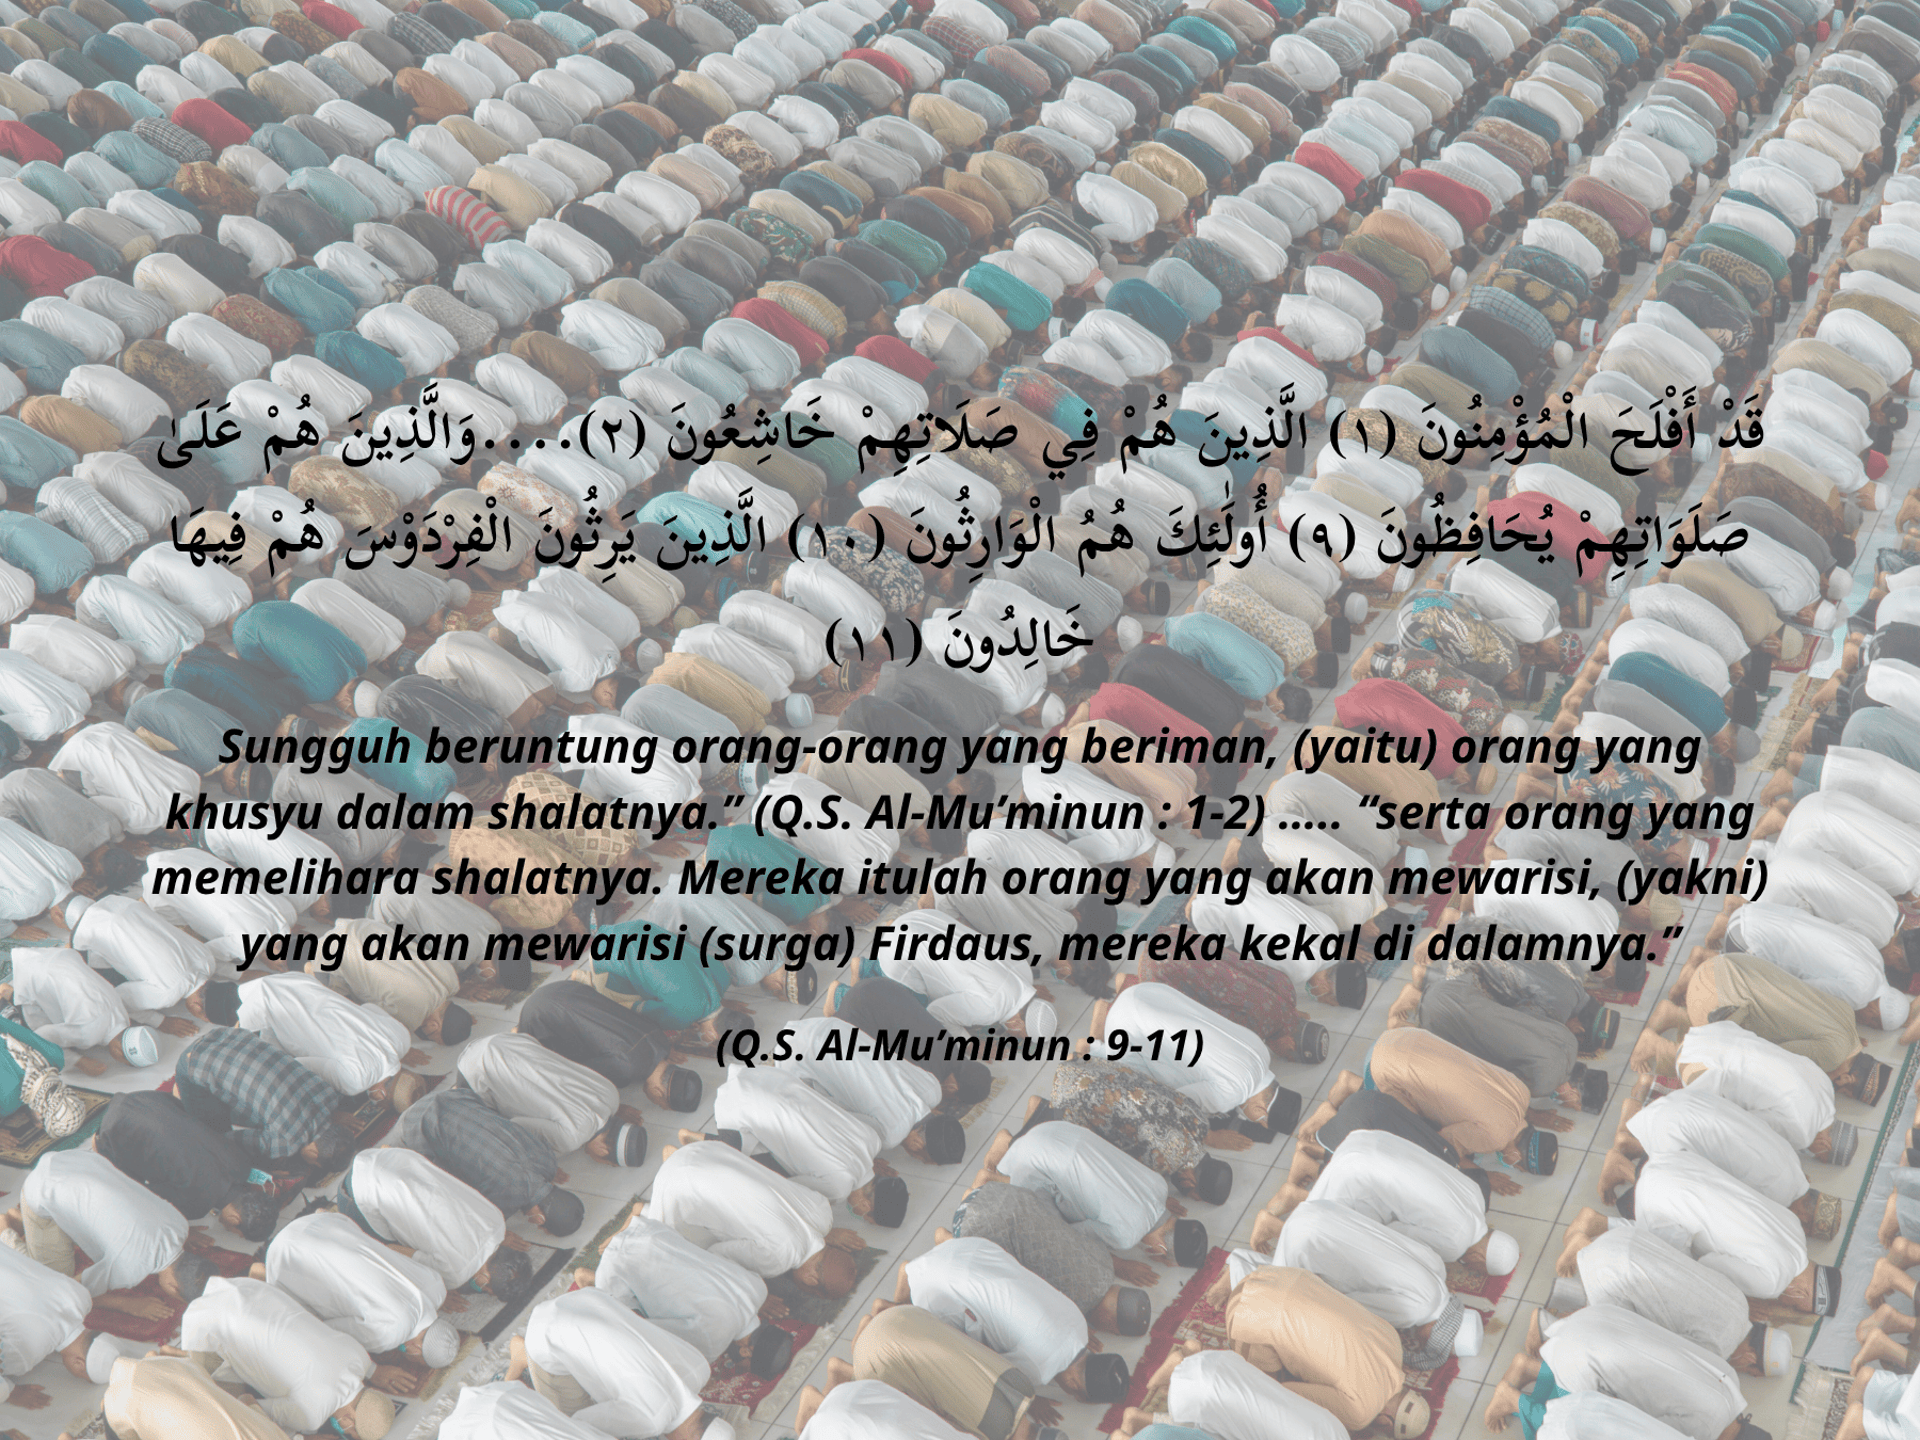 قَدْ أَفْلَحَ الْمُؤْمِنُونَ (١) الَّذِينَ هُمْ فِي صَلَاتِهِمْ خَاشِعُونَ (٢)....وَالَّذِينَ هُمْ عَلَىٰ
صَلَوَاتِهِمْ يُحَافِظُونَ (٩) أُولَٰئِكَ هُمُ الْوَارِثُونَ (١٠) الَّذِينَ يَرِثُونَ الْفِرْدَوْسَ هُمْ فِيهَا
خَالِدُونَ (١١)
Sungguh beruntung orang-orang yang beriman, (yaitu) orang yang
khusyu dalam shalatnya.” (Q.S. Al-Mu’minun : 1-2) ..... “serta orang yang
memelihara shalatnya. Mereka itulah orang yang akan mewarisi, (yakni)
yang akan mewarisi (surga) Firdaus, mereka kekal di dalamnya.”
(Q.S. Al-Mu’minun : 9-11)